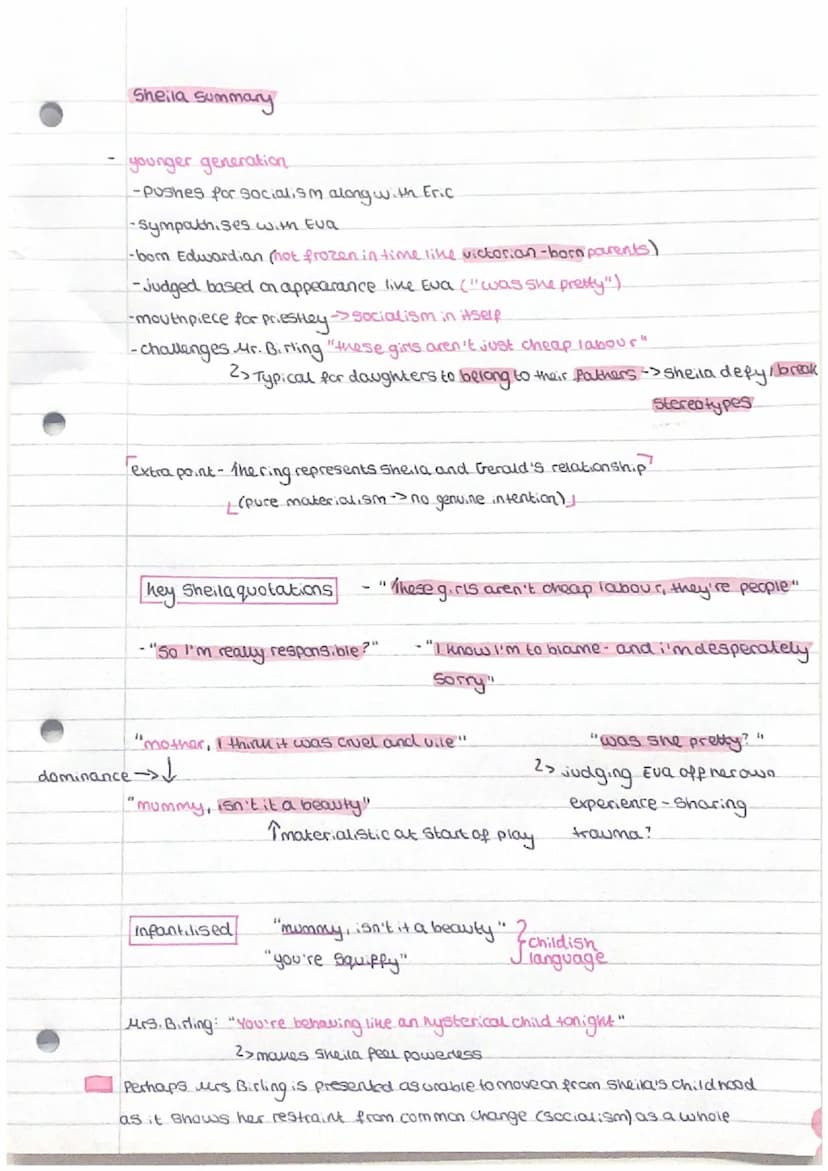 Sheila summary
- younger generation
- pushes for socialism along with Eric
- sympathises with Eva
- born Edwardian (not frozen in time like victorian-born parents)
- judged based on appearance like Eva ("was she pretty")
- mouthpiece for priestley -> socialism in itself
- challenges Mr. Birling "these girls aren't just cheap labour"
↳ Typical for daughters to belong to their fathers -> sheila defy / break
stereotypes
extra point - the ring represents sheila and Gerald's relationship
(pure materialism -> no genuine intention)
key Sheila quotations - "these girls aren't cheap labour, they're people"
- "so I'm really responsible?" - "I know I'm to blame - and i'm desperately
sorry"
"mother, I think it was cruel and vile" "was she pretty?"
dominance -> ↓ ↳ judging Eva off her own
"mummy, isn't it a beauty" experience - sharing
↑ materialistic at start of play trauma?
infantilised "mummy, isn't it a beauty" } childish
"you're squiffy" language
Mrs. Birling: "You're behaving like an hysterical child tonight"
↳ makes Sheila feel powerless
Perhaps Mrs Birling is presented as unable to move on from Sheila's childhood
as it shows her restraint from common change (socialism) as a whole